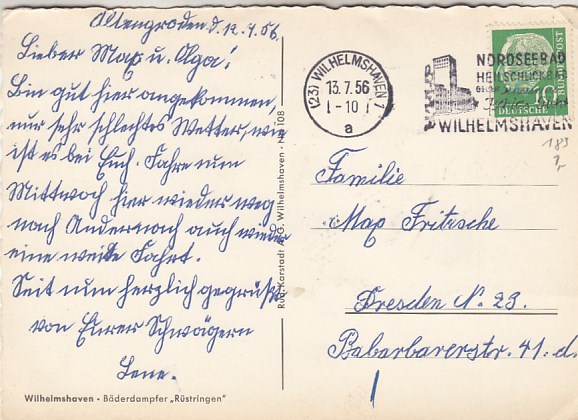 Altengroden d. 12.7.56.
Lieber Max u. Olga!
Bin gut hier angekommen,
nur sehr schlechtes Wetter, wie
ist es bei Euch. Fahre num
Mittwoch hier wieder weg
nach Andernach auch wieder
eine weite Fahrt.
Seit num herzlich gegrüßt
von Eurer Schwägern
Lene.
Wilhelmshaven - Bäderdampfer „Rüstringen"
Rud. Karstadt A.G. Wilhelmshaven - Nr. 108
(23) WILHELMSHAVEN 7
13.7.56
-10
a
NORDSEEBAD
HEILSCHLICKBAD
WILHELMSHAVEN
DEUTSCHE BUNDESPOST
10
183
Familie
Max Fritzsche
Dresden N. 23.
Baberbarerstr. 41. d.